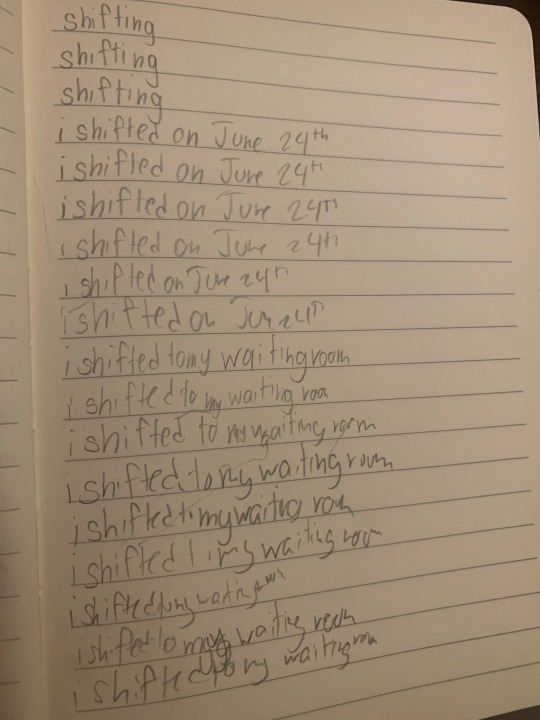 shifting
shifting
shifting
i shifted on June 24th
i shifted on June 24th
i shifted on June 24th
i shifted on June 24th
i shifted on June 24th
i shifted on Jun 24th
i shifted to my waiting room
i shifted to my waiting room
i shifted to my waiting room
i shifted to my waiting room
i shifted to my waiting room
i shifted to my waiting room
i shifted to my waiting room
i shifted to my waiting room
i shifted to my waiting room